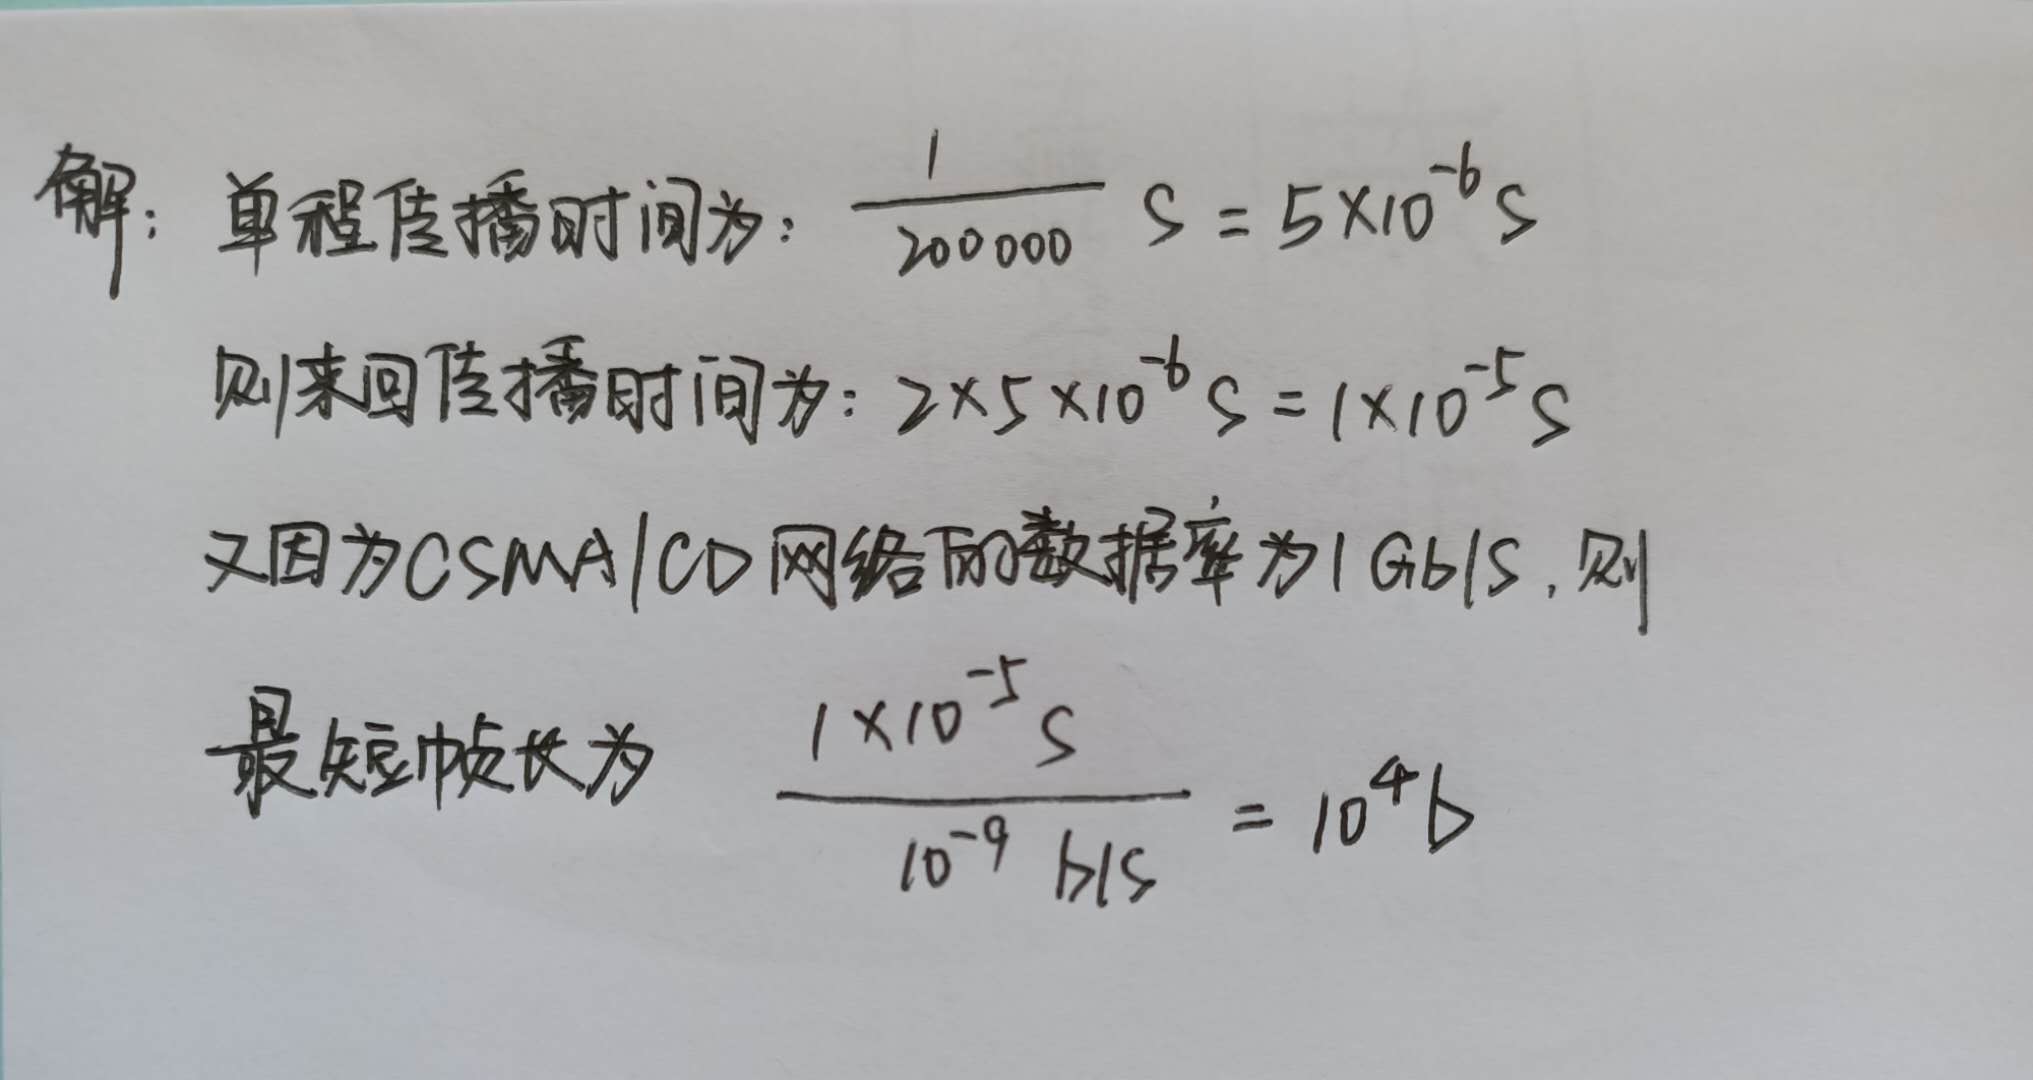 解：单程传播时间为：1/200000 s = 5×10⁻⁶ s
则来回传播时间为：2×5×10⁻⁶ s = 1×10⁻⁵ s
又因为CSMA/CD网络的数据率为1Gb/s，则
最短帧长为 1×10⁻⁵ s / 10⁻⁹ b/s = 10⁴ b